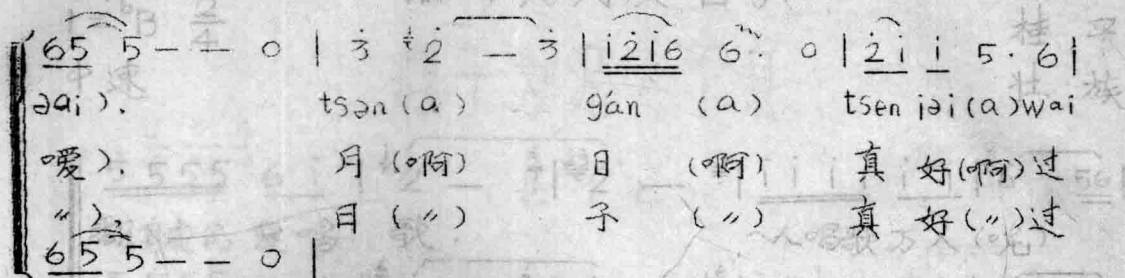 65 5 - - 0 | 3̇ 2̇ - 3̇ | i̇2̇i̇6 6· 0 | 2̇i̇ i̇ 5· 6 |
əai). tsən (a) gán (a) tsen iəi (a) wai
嗳). 月 (啊) 日 (啊) 真 好 (啊) 过
〃). 日 (〃) 子 (〃) 真 好 (〃) 过
65 5 - - 0 |